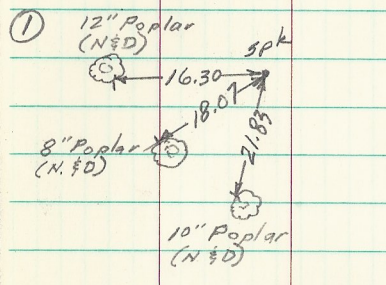 ①
12" Poplar
(N&D)
spk
16.30
18.07
8" Poplar
(N.&D)
21.83
10" Poplar
(N.&D)